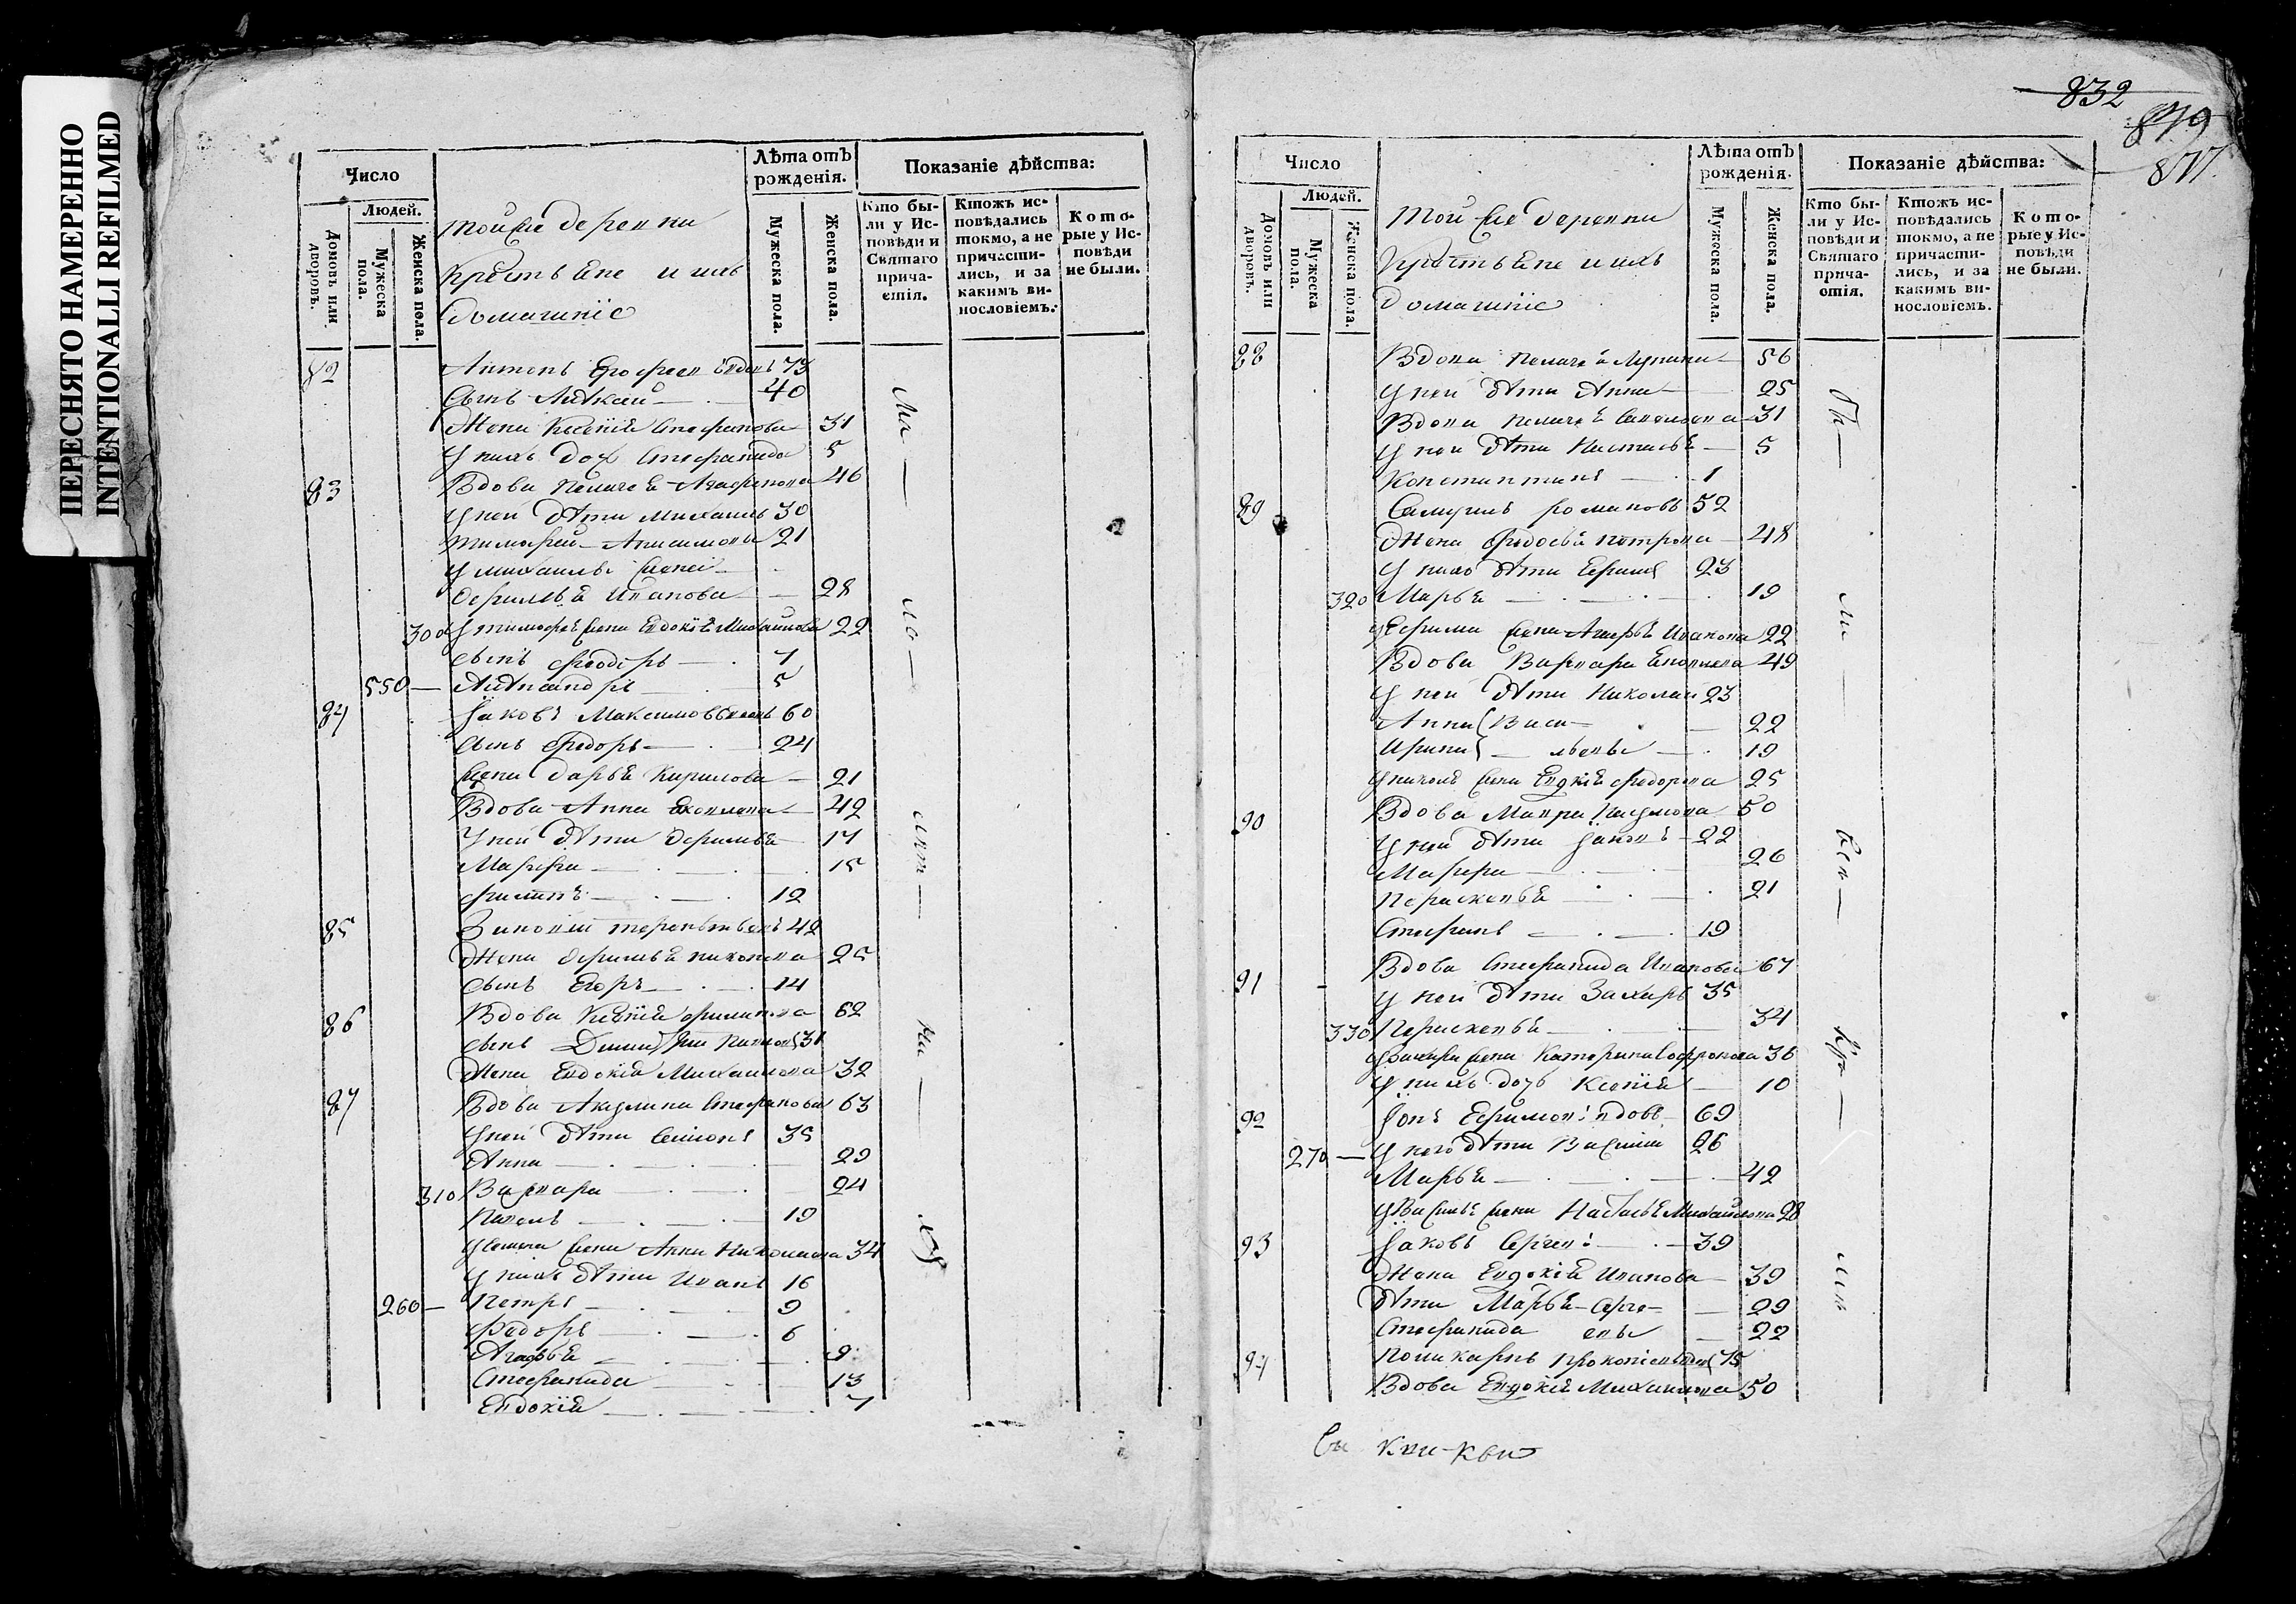 ПЕРЕСНЯТО НАМЕРЕННО
INTENTIONALLI REFILMED
Число
Людей.
Домовъ или дворовъ.
Мужеска пола.
Женска пола.
Той же деревни
Крестьяне и ихъ
домашніе
Лѣта отъ рожденія.
Мужеска пола.
Женска пола.
Показаніе дѣйства:
Кто были у Исповѣди и Святаго причастія.
Ктожъ исповѣдались токмо, а не причастились, и за какимъ винословіемъ.
Которые у Исповѣди не были.
82 Антонъ 73
Сынъ Алѣксѣй 40
Жена Ксенія Стефанова 31
У нихъ доч Стефанида 5
83 Вдова Пелагея Агафонова 46
У ней дѣти Михаилъ 30
Тимофей 21
У михаила жена
Ефимья Иванова 28
300 У тимофея жена Евдокія Михайлова 22
сынъ Феодоръ 7
550 Алѣксандръ 5
84 Яковъ Максимовъ 60
Сынъ Федоръ 24
жена Дарья Кирилова 21
Вдова Анна 42
У ней дѣти Ефимья 17
Марфа 15
Филипъ 12
85 Зиновій терентьевъ 42
Жена Ефимья 25
Сынъ Егоръ 14
86 Вдова Ксенія Филипова 62
сынъ Димитрій 31
Жена Евдокія Михаилова 32
87 Вдова Акулина Стефанова 63
У ней дѣти Семіонъ 35
Анна 29
310 Варвара 24
Павелъ 19
У Семена жена Анна 34
У нихъ дѣти Иванъ 16
260 Петръ 9
Федоръ 6
Агафья 9
Стефанида 13
Евдокія 7
832
879
877.
Число
Людей.
Домовъ или дворовъ.
Мужеска пола.
Женска пола.
Той же деревни
Крестьяне и ихъ
домашніе
Лѣта отъ рожденія.
Мужеска пола.
Женска пола.
Показаніе дѣйства:
Кто были у Исповѣди и Святаго причастія.
Ктожъ исповѣдались токмо, а не причастились, и за какимъ винословіемъ.
Которые у Исповѣди не были.
88 Вдова Пелагея 56
У ней дѣти Анна 25
Вдова Пелагея 31
У ней дѣти Настасья 5
Константинъ 1
89 Самуилъ романовъ 52
Жена Федосья петрова 48
У нихъ дѣти Ефимъ 23
320 Марья 19
У Ефима жена Агафья Иванова 22
Вдова Варвара 49
У ней дѣти Николай 23
Анна Васи- 22
Ирина льевы 19
жена Евдокія Федорова 25
90 Вдова Мавра Наумова 50
У ней дѣти Яковъ 22
Марфа 26
Парасковья 21
Стефанъ 19
91 Вдова Стефанида Иванова 67
У ней дѣти Захаръ 35
330 Парасковья 34
У Захара жена Катерина Софронова 36
У нихъ дочь Ксенія 10
92 Іонъ Ефимовъ вдовъ 69
270 У него дѣти Василій 26
Марья 42
У Василья жена Настасья Михайлова 28
93 Яковъ Сергеев 39
Жена Евдокія Иванова 39
Дѣти Марья Серге- 29
Стефанида евы 22
94 Поликарпъ Прокопіевъ 75
Вдова Евдокія Михаилова 50